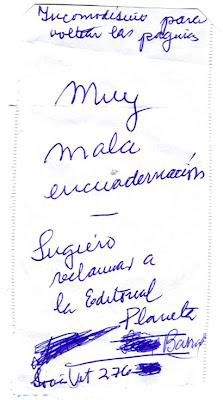 Incomodísimo para
voltear las páginas
Muy
mala
encuadernación
—
Sugiero
reclamar a
la Editorial
Planeta
276